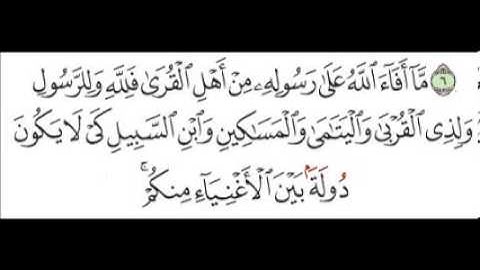 ٦ مَّآ أَفَآءَ ٱللَّهُ عَلَىٰ رَسُولِهِۦ مِنْ أَهْلِ ٱلْقُرَىٰ فَلِلَّهِ وَلِلرَّسُولِ
وَلِذِى ٱلْقُرْبَىٰ وَٱلْيَتَـٰمَىٰ وَٱلْمَسَـٰكِينِ وَٱبْنِ ٱلسَّبِيلِ كَىْ لَا يَكُونَ
دُولَةًۢ بَيْنَ ٱلْأَغْنِيَآءِ مِنكُمْ ۚ